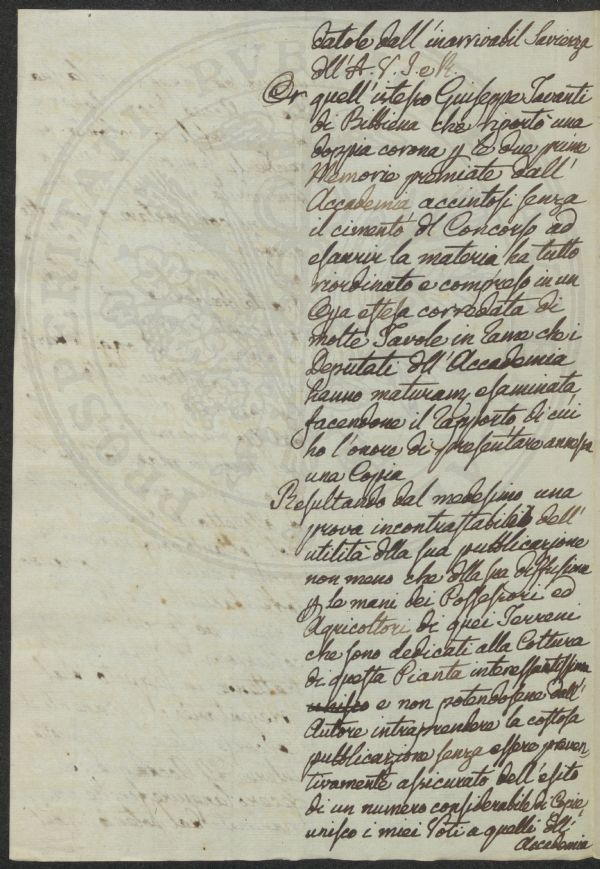 datole dall'inarrivabil Saviezza
dll'A. V. I. e R.
Or quell'istesso Giuseppe Tavanti
di Bibbiena che riportò una
doppia corona p le due prime
Memorie premiate dall'
Accademia accintosi senza
il cimento dl Concorso ad
esaurir la materia ha tutto
riordinato e compreso in un
Opa estesa corredata di
molte Tavole in rame che i
Deputati dll'Accademia
hanno maturam. esaminata
facendone il rapporto di cui
ho l'onore di presentare annessa
una Copia
Resultando dal medesimo una
prova incontrastabile dell'
utilità dlla sua pubblicazione
non meno che dlla sua diffusione
p le mani dei Possessori ed
Agricoltori di quei Terreni
che sono dedicati alla Coltura
di questa Pianta interessantissima
unisco e non potendosene dall'
Autore intraprendere la costosa
pubblicazione senza essere preven-
tivamente assicurato dell'esito
di un numero considerabile di Copie
unisco i miei Voti a quelli dll'
Accademia
PROSPERITATI PUB